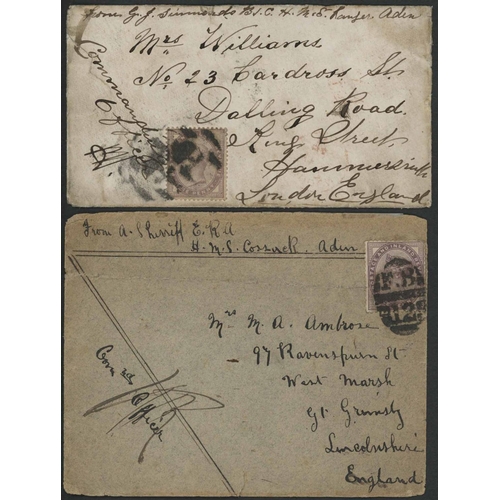 From G. J. Simmonds B.1.C. H.M.S. Ranger, Aden
Mrs Williams
No 23 Cardross St.
Dalling Road.
King Street
Hammersmith
London England
Commanding
Officer
From A. Sherriff E.R.A
H.M.S. Cossack, Aden
Mrs M. A. Ambrose
97 Ravenspurn St
West Marsh
Gt Grimsby
Lincolnshire
England
Officer